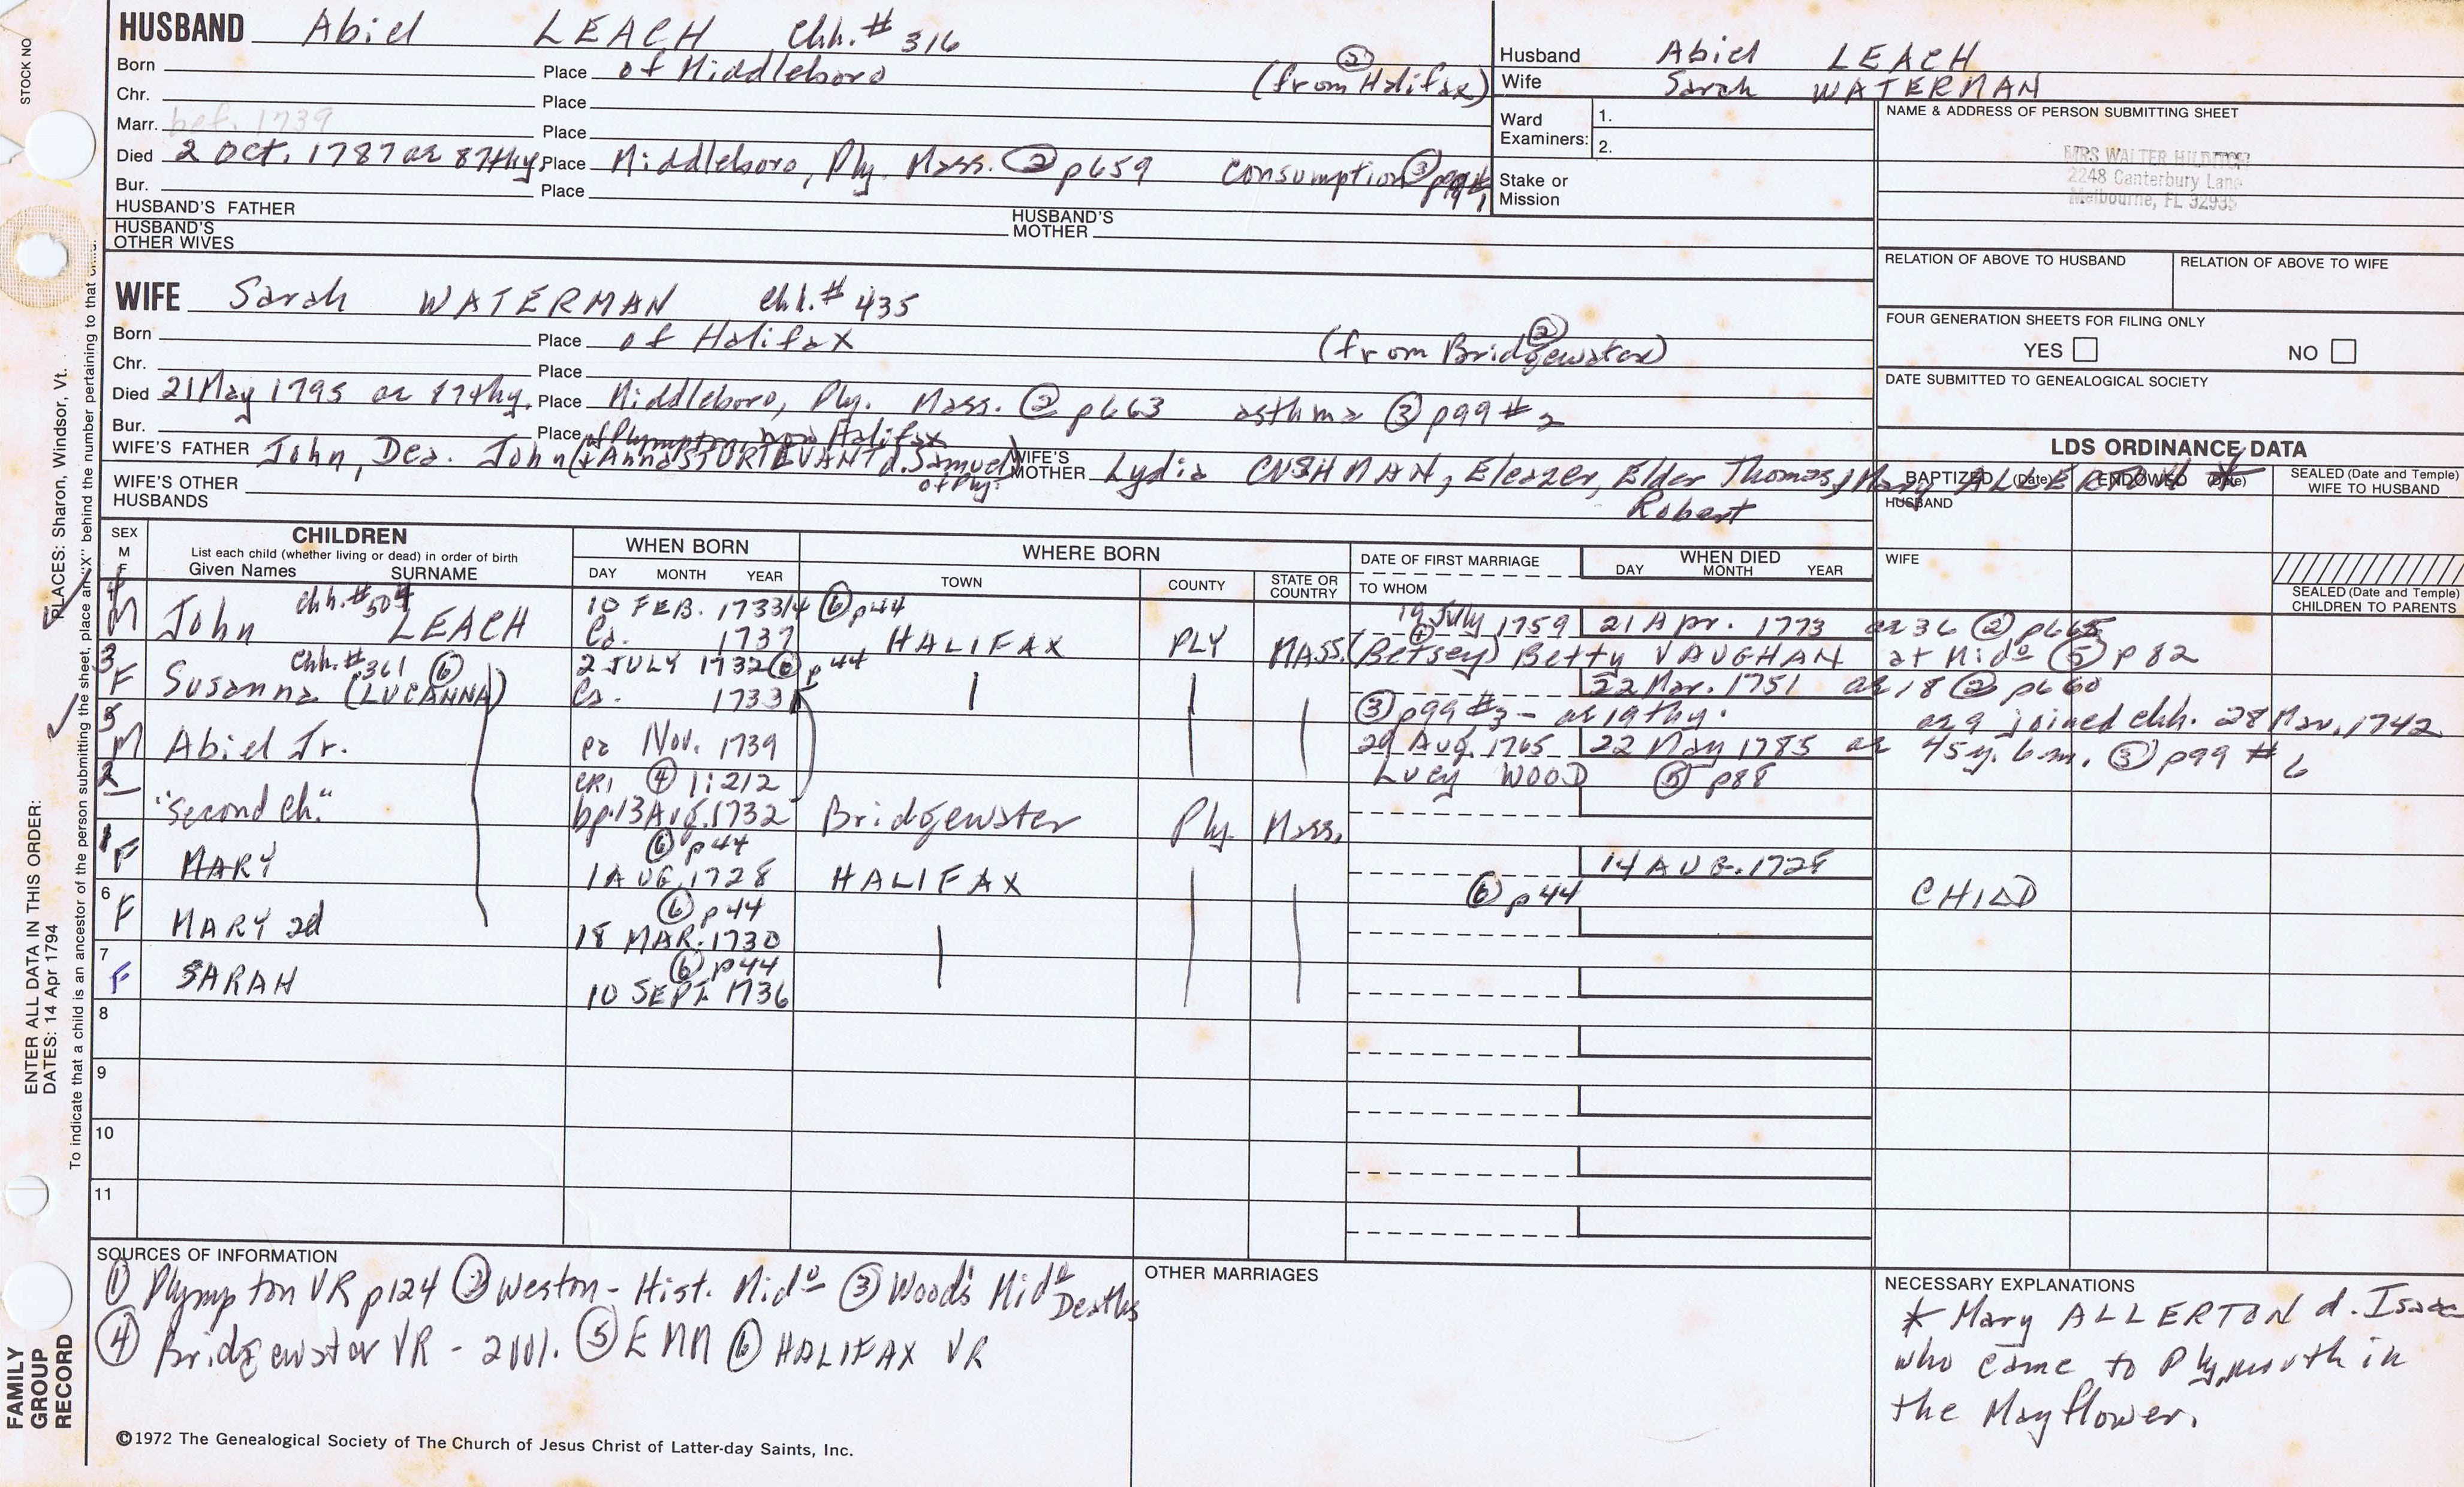 HUSBAND Abiel LEACH Chh. # 316
Born Place of Middleboro (from Halifax) ②
Chr. Place
Marr. bef. 1739 Place
Died 2 Oct. 1787 ae 87thy Place Middleboro, Ply. Mass. ② p659 Consumption ③
Bur. Place
HUSBAND'S FATHER HUSBAND'S MOTHER
HUSBAND'S OTHER WIVES
Husband Abiel LEACH
Wife Sarah WATERMAN
Ward Examiners: 1.
2.
Stake or Mission
NAME & ADDRESS OF PERSON SUBMITTING SHEET
MRS WALTER HILDITCH
2248 Canterbury Lane
Melbourne, FL 32935
RELATION OF ABOVE TO HUSBAND RELATION OF ABOVE TO WIFE
FOUR GENERATION SHEETS FOR FILING ONLY
YES NO
DATE SUBMITTED TO GENEALOGICAL SOCIETY
WIFE Sarah WATERMAN Chh. # 435
Born Place of Halifax (from Bridgewater) ②
Chr. Place
Died 21 May 1795 ae 87thy. Place Middleboro, Ply. Mass. ② p663 asthma ③ p99 # 2
Bur. Place of Plympton, now Halifax
WIFE'S FATHER John, Dea. John (+ Anna STURTEVANT d. Samuel of Ply. WIFE'S MOTHER Lydia CUSHMAN, Eleazer, Elder Thomas, / Mary ALLERTON *
Robert
WIFE'S OTHER HUSBANDS
LDS ORDINANCE DATA
BAPTIZED (Date) ENDOWED (Date) SEALED (Date and Temple) WIFE TO HUSBAND
HUSBAND
WIFE
SEALED (Date and Temple) CHILDREN TO PARENTS
SEX M F
CHILDREN
List each child (whether living or dead) in order of birth
Given Names SURNAME
WHEN BORN
DAY MONTH YEAR
WHERE BORN
TOWN COUNTY STATE OR COUNTRY
DATE OF FIRST MARRIAGE
TO WHOM
WHEN DIED
DAY MONTH YEAR
4 Chh. # 504 10 FEB. 1733/4 ⑥ p44 19 July 1759 21 Apr. 1773 ae 36 ② p665
M John LEACH Ca. 1737 HALIFAX PLY MASS. (Betsey) Betty VAUGHAN at Mido ⑤ p 82
3 Chh. # 361 ⑥ 2 JULY 1732 ⑥ p 44 22 Mar. 1751 ae 18 ② p660
F Susanna (LUCANNA) Ca. 1733 ③ p99 #3 - ae 19thy. ae 9 joined chh. 28 Mar. 1742
5
M Abiel Jr. ca Nov. 1739 29 Aug. 1765 22 May 1785 ae 45y. 6m. ③ p99 # 6
CR1 ④ 1:212 Lucy WOOD ⑤ p88
2 "Second ch." bp. 13 Aug. 1732 Bridgewater Ply Mass.
1 ⑥ p44 14 AUG. 1728
F MARY 1 AUG. 1728 HALIFAX ⑥ p44 CHILD
6 ⑥ p44
F MARY 2d 18 MAR. 1730
7 ⑥ p44
F SARAH 10 SEPT 1736
8
9
10
11
SOURCES OF INFORMATION
① Plympton VR p124 ② Weston - Hist. Mido ③ Wood's Mido Deaths
④ Bridgewater VR - 2 vol. ⑤ EMM ⑥ HALIFAX VR
OTHER MARRIAGES
NECESSARY EXPLANATIONS
* Mary ALLERTON d. Isaac
who came to Plymouth in
the Mayflower.
©1972 The Genealogical Society of The Church of Jesus Christ of Latter-day Saints, Inc.
STOCK NO
PLACES: Sharon, Windsor, Vt.
ENTER ALL DATA IN THIS ORDER:
DATES: 14 Apr 1794
To indicate that a child is an ancestor of the person submitting the sheet, place an "X" behind the number pertaining to that child.
FAMILY GROUP RECORD